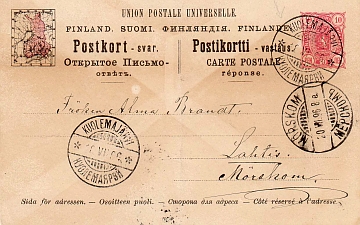 UNION POSTALE UNIVERSELLE.
FINLAND. SUOMI. ФИНЛЯНДІЯ. FINLANDE.
Postkort - svar. Postikortti - vastaus.
Открытое Письмо- CARTE POSTALE
отвѣтъ. réponse.
10
KUOLEMAJÄRVI
Fröken Alma Brandt.
MÖRSKOM
KUOLEMAJÄRVI
Lahtis
Mörskom.
Sida för adressen. - Osoitteen puoli. - Сторона для адреса - Côté réservé à l'adresse.